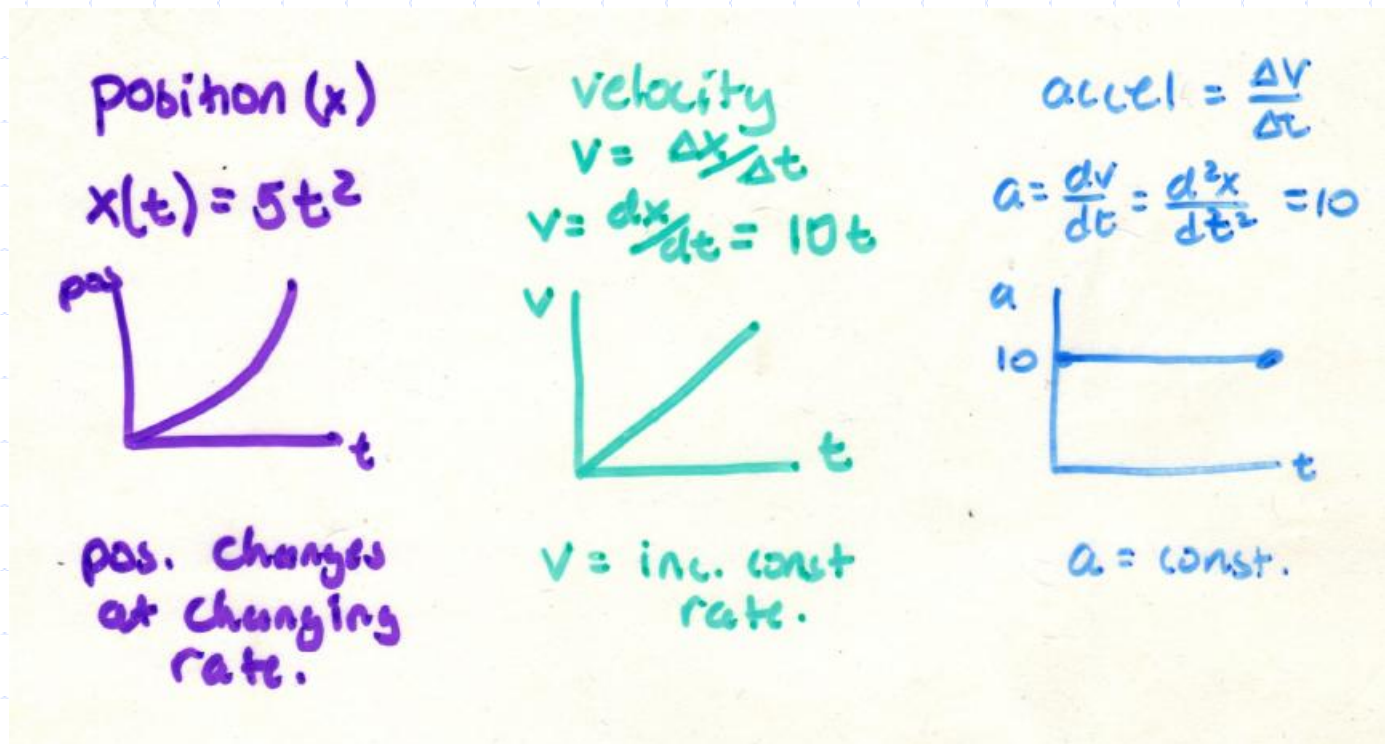 position (x)
x(t) = 5t²
pos
t
pos. changes
at changing
rate.
velocity
v = Δx/Δt
v = dx/dt = 10t
v
t
v = inc. const
rate.
accel = ΔV/Δt
a = dv/dt = d²x/dt² = 10
a
10
t
a = const.